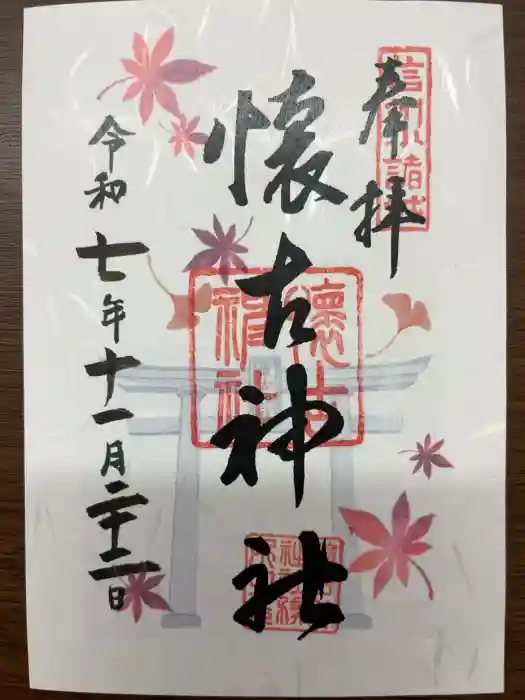 奉拝
信州小諸城
懐古神社
懐古神社
令和七年十一月二十二日